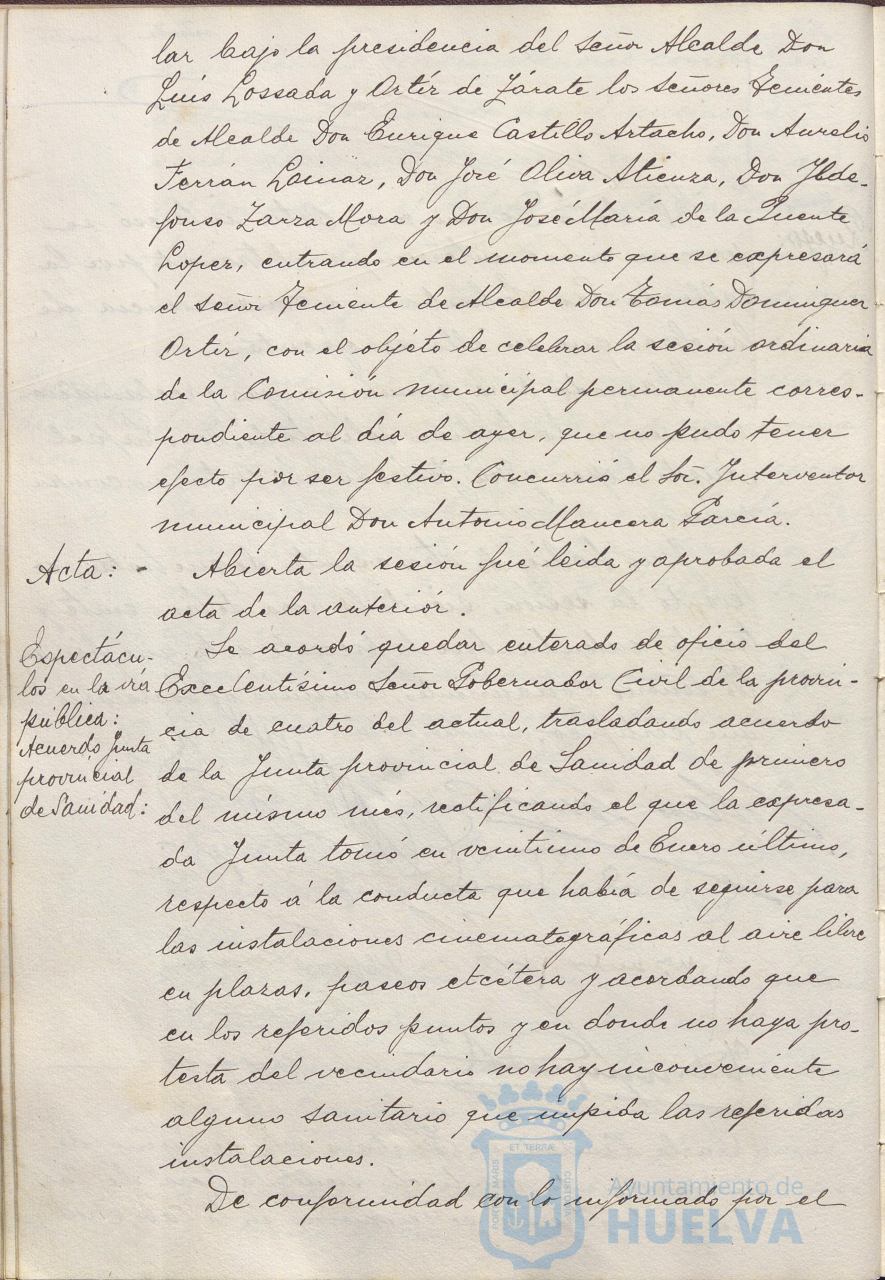 lar bajo la presidencia del Señor Alcalde Don
Luis Lossada y Ortíz de Zárate los señores Tenientes
de Alcalde Don Enrique Castillo Artacho, Don Aurelio
Ferrán Loinaz, Don José Oliva Atienza, Don Ilde-
fonso Zarza Mora y Don José María de la Puente
Lopez, entrando en el momento que se expresará
el señor Teniente de Alcalde Don Tomás Dominguez
Ortíz, con el objeto de celebrar la sesión ordinaria
de la Comisión municipal permanente corres-
pondiente al día de ayer, que no pudo tener
efecto por ser festivo. Concurrió el Sr. Interventor
municipal Don Antonio Mancera García.
Acta: -
Abierta la sesión fué leida y aprobada el
acta de la anteriór.
Espectácu-
los en la vía
pública:
Acuerdo Junta
provincial
de Sanidad:
Se acordó quedar enterado de oficio del
Excelentísimo Señor Gobernador Civil de la provin-
cia de cuatro del actual, trasladando acuerdo
de la Junta provincial de Sanidad de primero
del mismo més, rectificando el que la expresa-
da Junta tomó en veintiuno de Enero último,
respecto á la conducta que había de seguirse para
las instalaciones cinematográficas al aire libre
en plazas, paseos etcétera y acordando que
en los referidos puntos y en donde no haya pro-
testa del vecindario no hay inconveniente
alguno sanitario que impida las referidas
instalaciones.
De conformidad con lo informado por el
ET TERRÆ
PORTUS MARIS
CUSTODIA
Ayuntamiento de
HUELVA